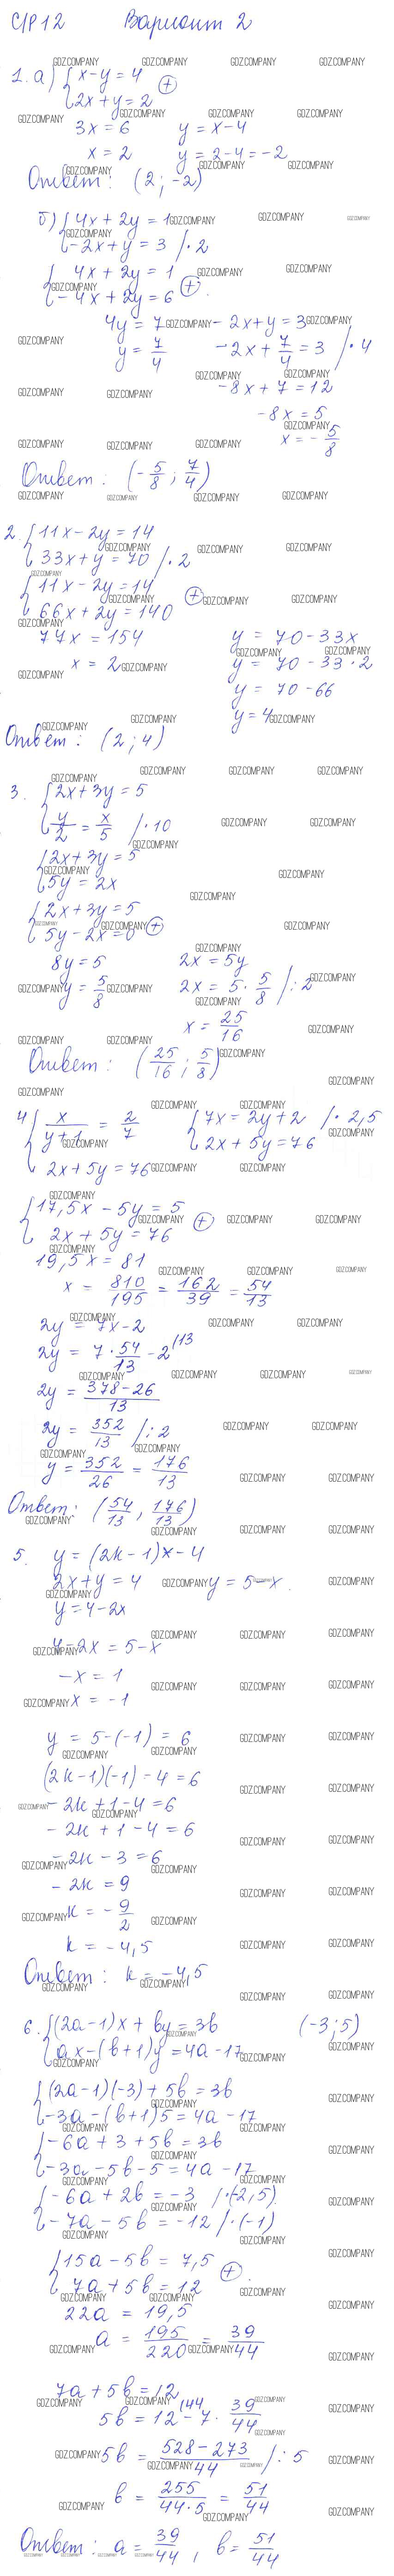 С/Р 12 Вариант 2
1. а) { x - y = 4
2x + y = 2 (+)
3x = 6 y = x - 4
x = 2 y = 2 - 4 = -2
Ответ: (2; -2)
б) { 4x + 2y = 1
-2x + y = 3 /·2
{ 4x + 2y = 1
-4x + 2y = 6 (+)
4y = 7 -2x + y = 3
y = 7/4 -2x + 7/4 = 3 /·4
-8x + 7 = 12
-8x = 5
x = -5/8
Ответ: (-5/8; 7/4)
2. { 11x - 2y = 14
33x + y = 70 /·2
{ 11x - 2y = 14
66x + 2y = 140 (+)
77x = 154 y = 70 - 33x
x = 2 y = 70 - 33·2
y = 70 - 66
y = 4
Ответ: (2; 4)
3. { 2x + 3y = 5
y/2 = x/5 /·10
{ 2x + 3y = 5
5y = 2x
{ 2x + 3y = 5
5y - 2x = 0 (+)
8y = 5 2x = 5y
y = 5/8 2x = 5·5/8 /:2
x = 25/16
Ответ: (25/16; 5/8)
4 { x/(y+1) = 2/7 { 7x = 2y + 2 /·2,5
2x + 5y = 76 2x + 5y = 76
{ 17,5x - 5y = 5
2x + 5y = 76 (+)
19,5x = 81
x = 810/195 = 162/39 = 54/13
2y = 7x - 2
2y = 7·54/13 - 2 /13
2y = (378 - 26)/13
2y = 352/13 /:2
y = 352/26 = 176/13
Ответ: (54/13, 176/13)
5. y = (2k - 1)x - 4
2x + y = 4 y = 5 - x
y = 4 - 2x
4 - 2x = 5 - x
-x = 1
x = -1
y = 5 - (-1) = 6
(2k - 1)(-1) - 4 = 6
-2k + 1 - 4 = 6
-2k + 1 - 4 = 6
-2k - 3 = 6
-2k = 9
k = -9/2
k = -4,5
Ответ: k = -4,5
6. { (2a - 1)x + by = 3b (-3; 5)
ax - (b + 1)y = 4a - 17
{ (2a - 1)(-3) + 5b = 3b
-3a - (b + 1)5 = 4a - 17
{ -6a + 3 + 5b = 3b
-3a - 5b - 5 = 4a - 17
{ -6a + 2b = -3 /·(-2,5)
-7a - 5b = -12 /·(-1)
{ 15a - 5b = 7,5
7a + 5b = 12 (+)
22a = 19,5
a = 195/220 = 39/44
7a + 5b = 12
5b = 12 /44 - 7·39/44
5b = (528 - 273)/44 /:5
b = 255/(44·5) = 51/44
Ответ: a = 39/44, b = 51/44
GDZ.COMPANY